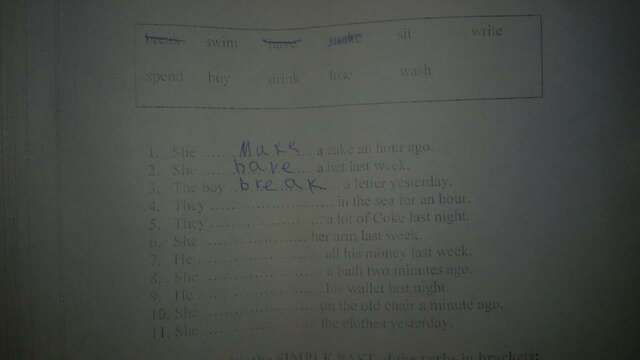 break swim have make sit write
spend buy drink lose wash
1. She ...... Make ... a cake an hour ago.
2. She ...... have ... a last week.
3. The boy break ... a letter yesterday.
4. They ........................... in the sea for an hour.
5. They ........................... a lot of Coke last night.
6. She ........................... her arm last week.
7. He ........................... all his money last week.
8. She ........................... a bath two minutes ago.
9. He ........................... his wallet last night
10. She ........................... on the old chair a minute ago.
11. She ........................... the clothes yesterday.
the SIMPLE PAST